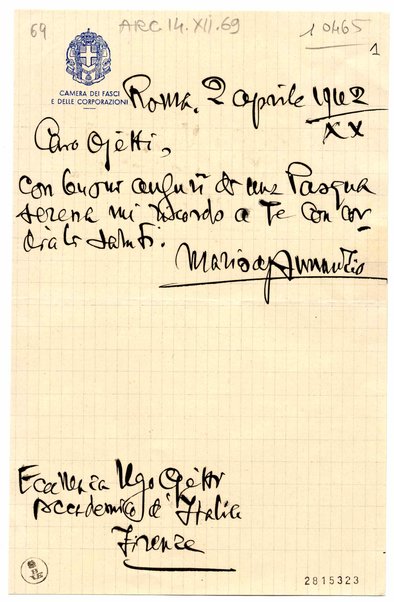 69
ARC 14.XII.69
10465
1
CAMERA DEI FASCI
E DELLE CORPORAZIONI
Roma, 2 aprile 1942
XX
Caro Ojetti,
con buoni auguri di una Pasqua
serena mi ricordo a Te con cor-
diali saluti.
Mario d'Annunzio
Eccellenza Ugo Ojetti
Accademico d'Italia
Firenze
2815323